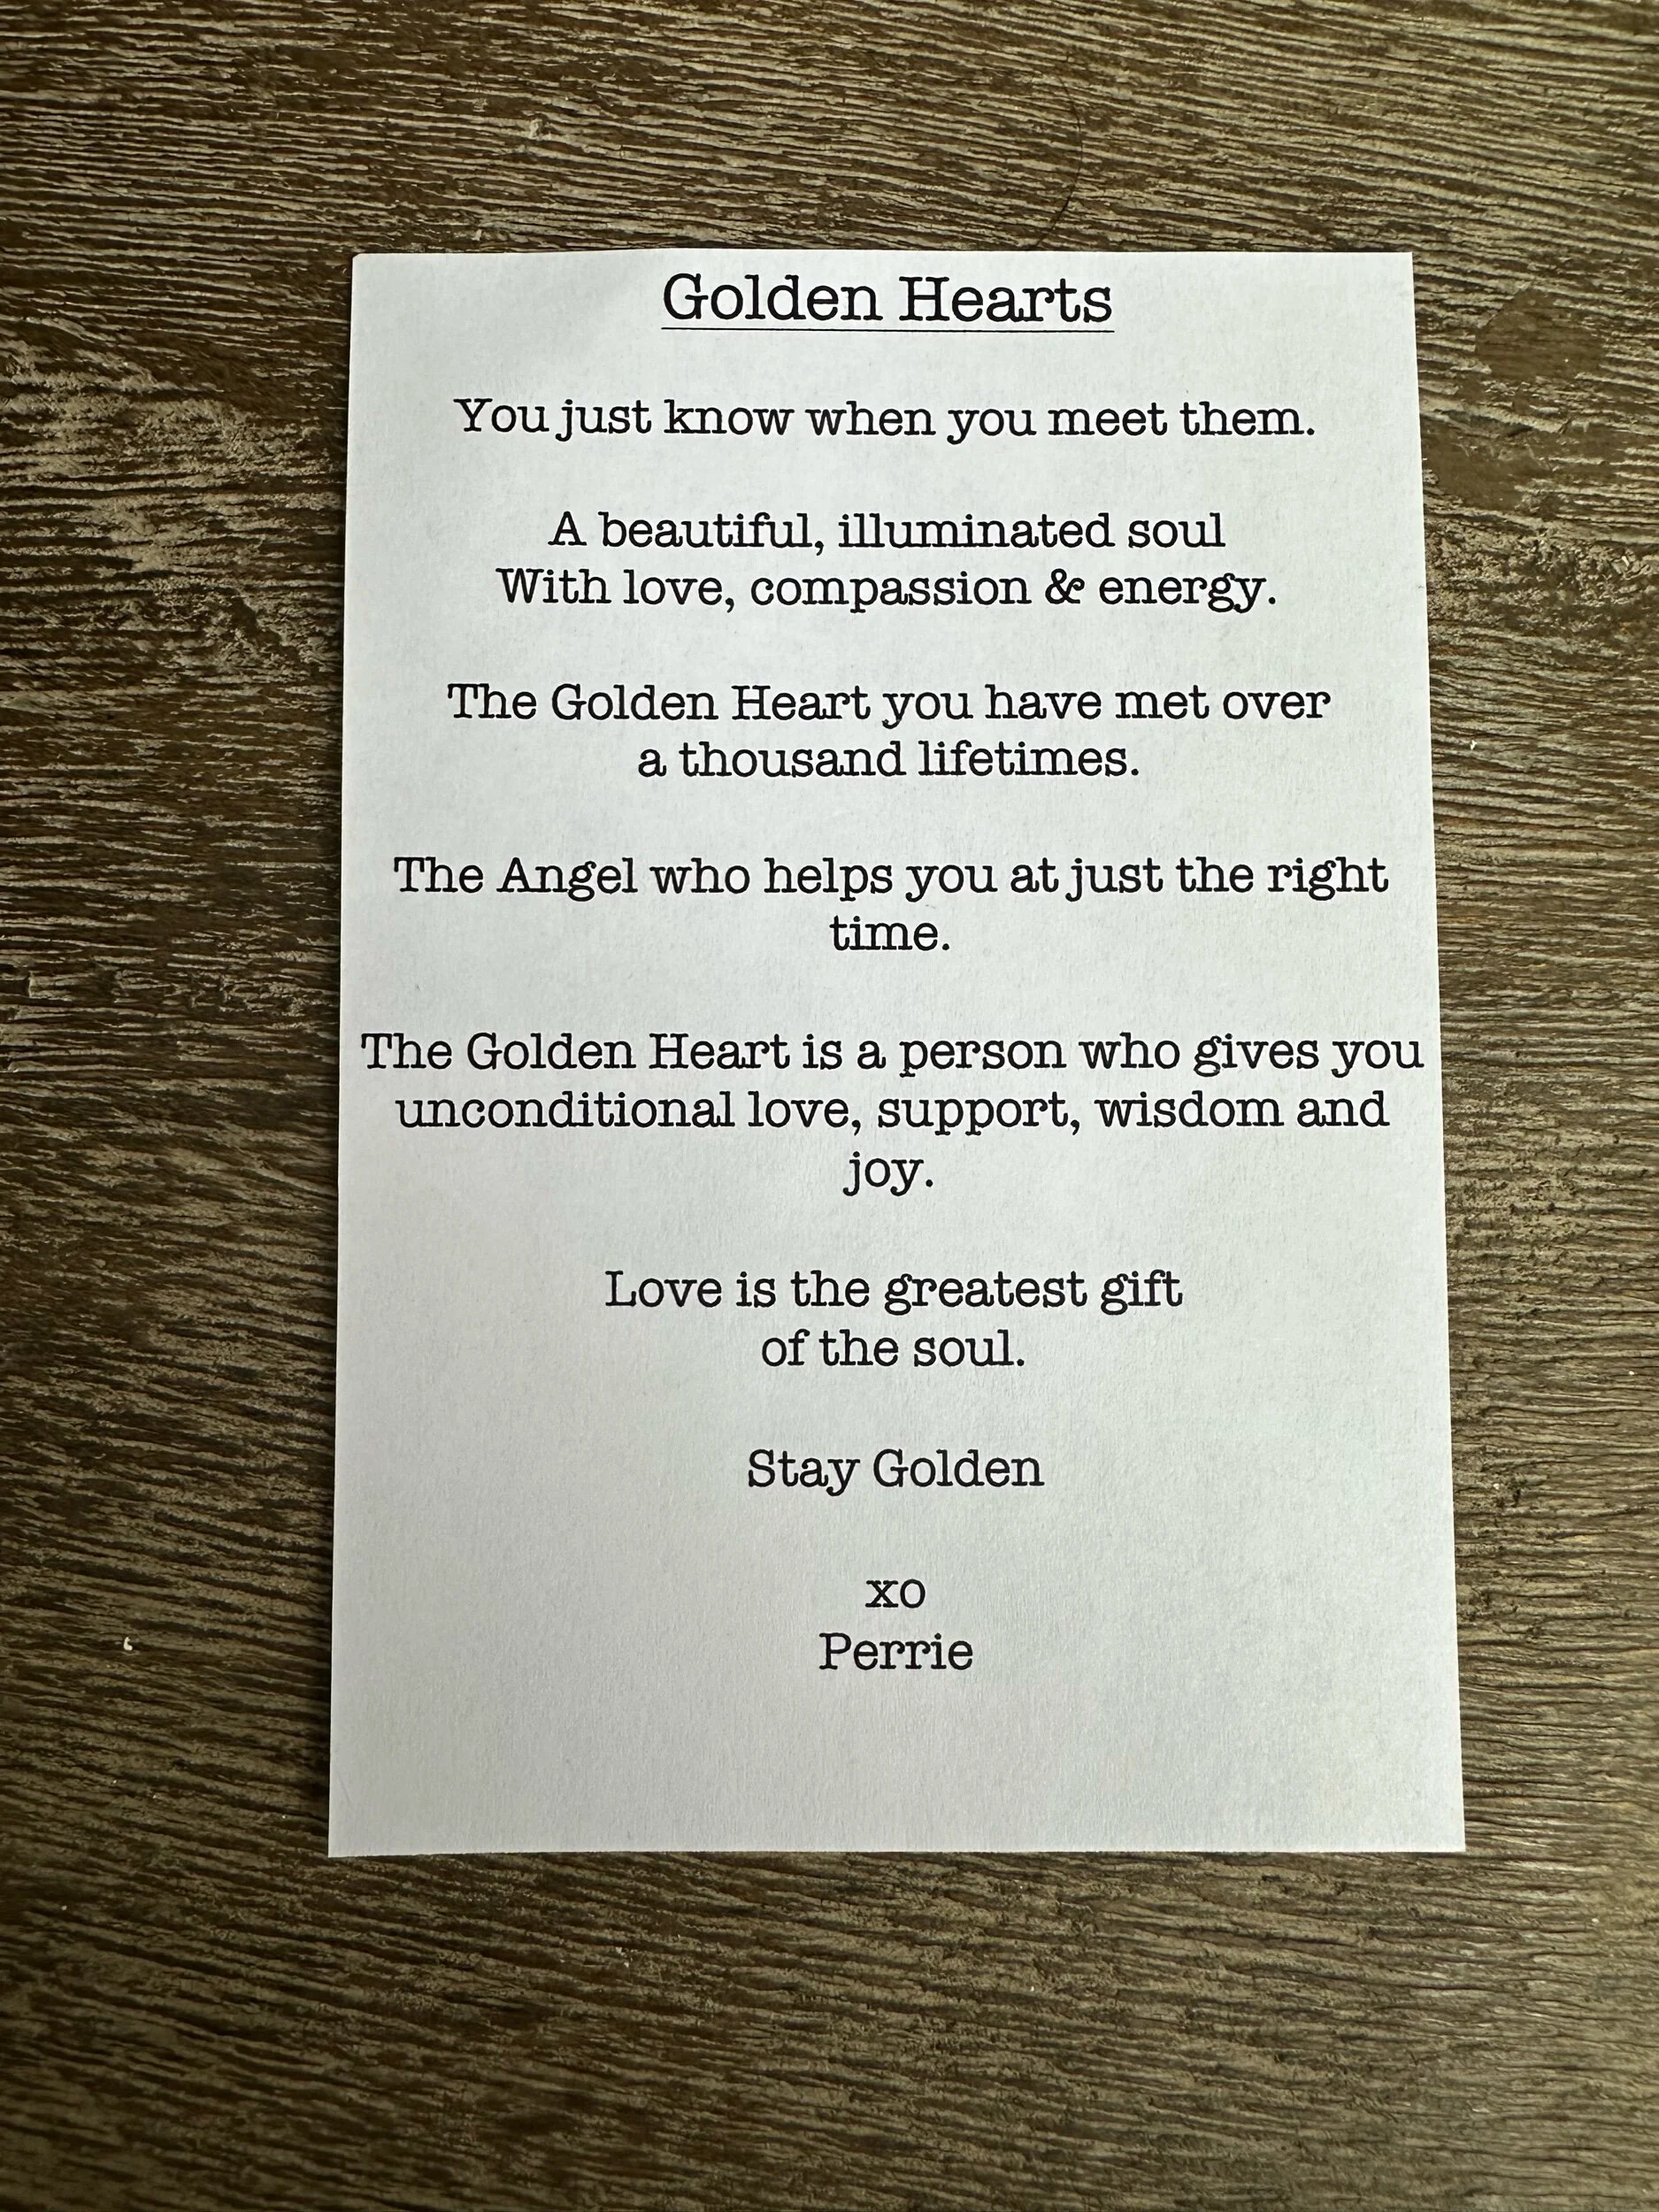 Golden Hearts
You just know when you meet them.
A beautiful, illuminated soul
With love, compassion & energy.
The Golden Heart you have met over
a thousand lifetimes.
The Angel who helps you at just the right
time.
The Golden Heart is a person who gives you
unconditional love, support, wisdom and
joy.
Love is the greatest gift
of the soul.
Stay Golden
xo
Perrie